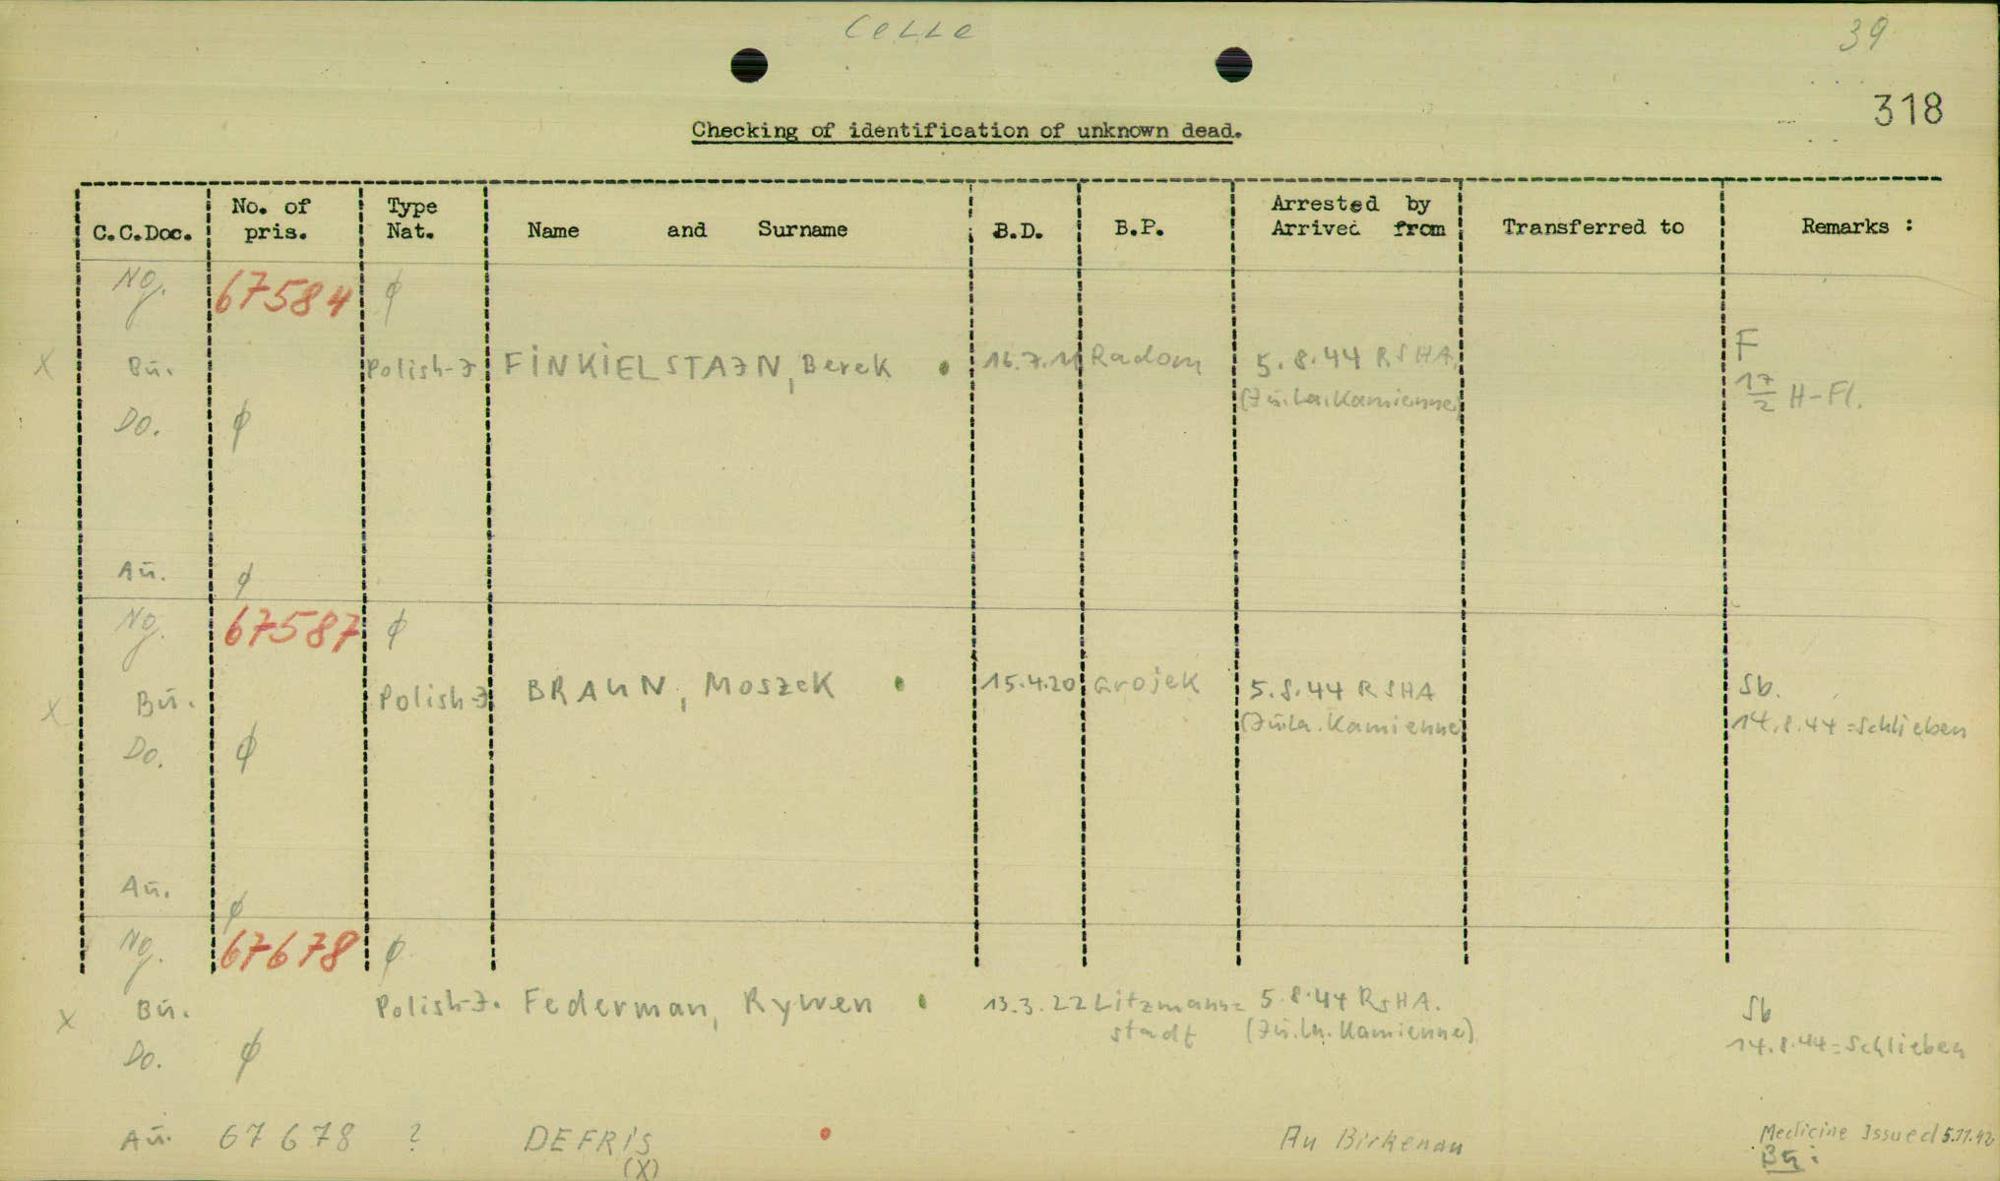 Celle
39
318
Checking of identification of unknown dead.
C.C.Doc. No. of pris. Type Nat. Name and Surname B.D. B.P. Arrested by Arrived from Transferred to Remarks :
Ng. 67584 ϕ
X Bü. Polish-J FINKIELSTAJN, Berek 16.7. Radom 5.8.44 RSHA. F
(Zü.La.Kamienne) 17/2 H-Fl.
Do. ϕ
Aü. ϕ
Ng. 67587 ϕ
X Bü. Polish-J BRAUN, Moszek 15.4.20 Grojek 5.8.44 RSHA Sb.
(Zü.La.Kamienne) 14.8.44=Schlieben
Do. ϕ
Aü. ϕ
Ng. 67678 ϕ
X Bü. Polish-J. Federman, Rywen 13.3.22 Litzmann= 5.8.44 RSHA. Sb
stadt (Zü.La.Kamienne) 14.8.44=Schlieben
Do. ϕ
Aü. 67678 ? DEFRIS Au Birkenau Medicine Issued 5.11.42
(X)